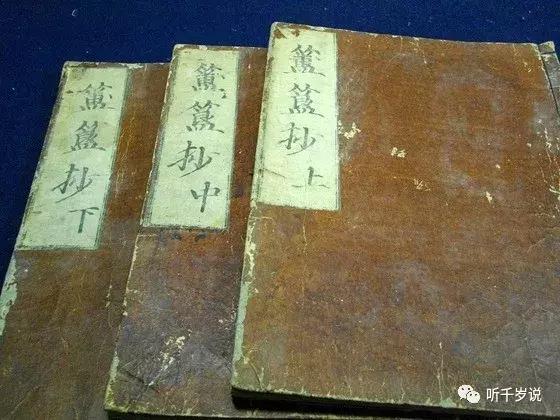 簠簋抄上
簠簋抄中
簠簋抄下
听千岁说